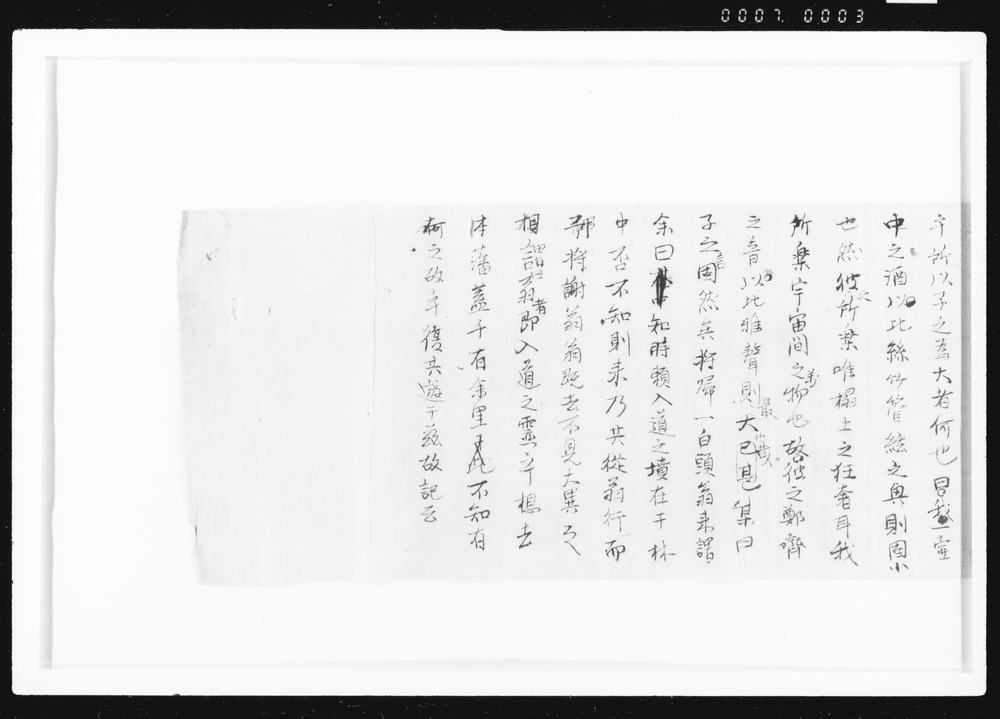 0007 0003
乎所以子之為大者何也曰我一壺
中之酒以比絲竹管絃之興則固小
也然彼之所樂唯榻上之狂奢耳我
所樂宇宙間之萬物也啓彼之鄭齊
之音以比雅聲則最大已甚哉某曰
子之言固然矣将帰一白頭翁来謂
余曰知時頼入道之墳在于林
中否不知則来乃共従翁行而
那将謝翁翁既去不見大異之
相謂曰翁者即入道之霊乎想去
本藩蓋千有余里不知有
何之故乎復共遊于茲故記云